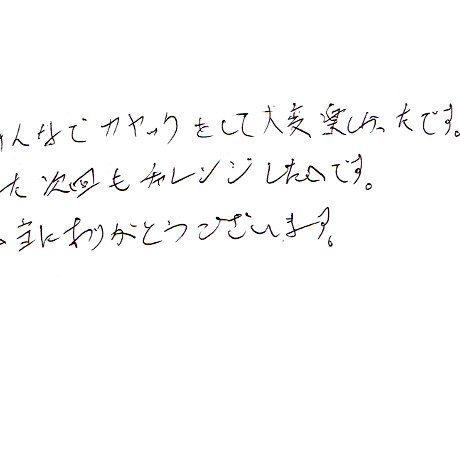 んなでカヤックをして大変楽しかったです。
た次回もチャレンジしたいです。
にありがとうございます。